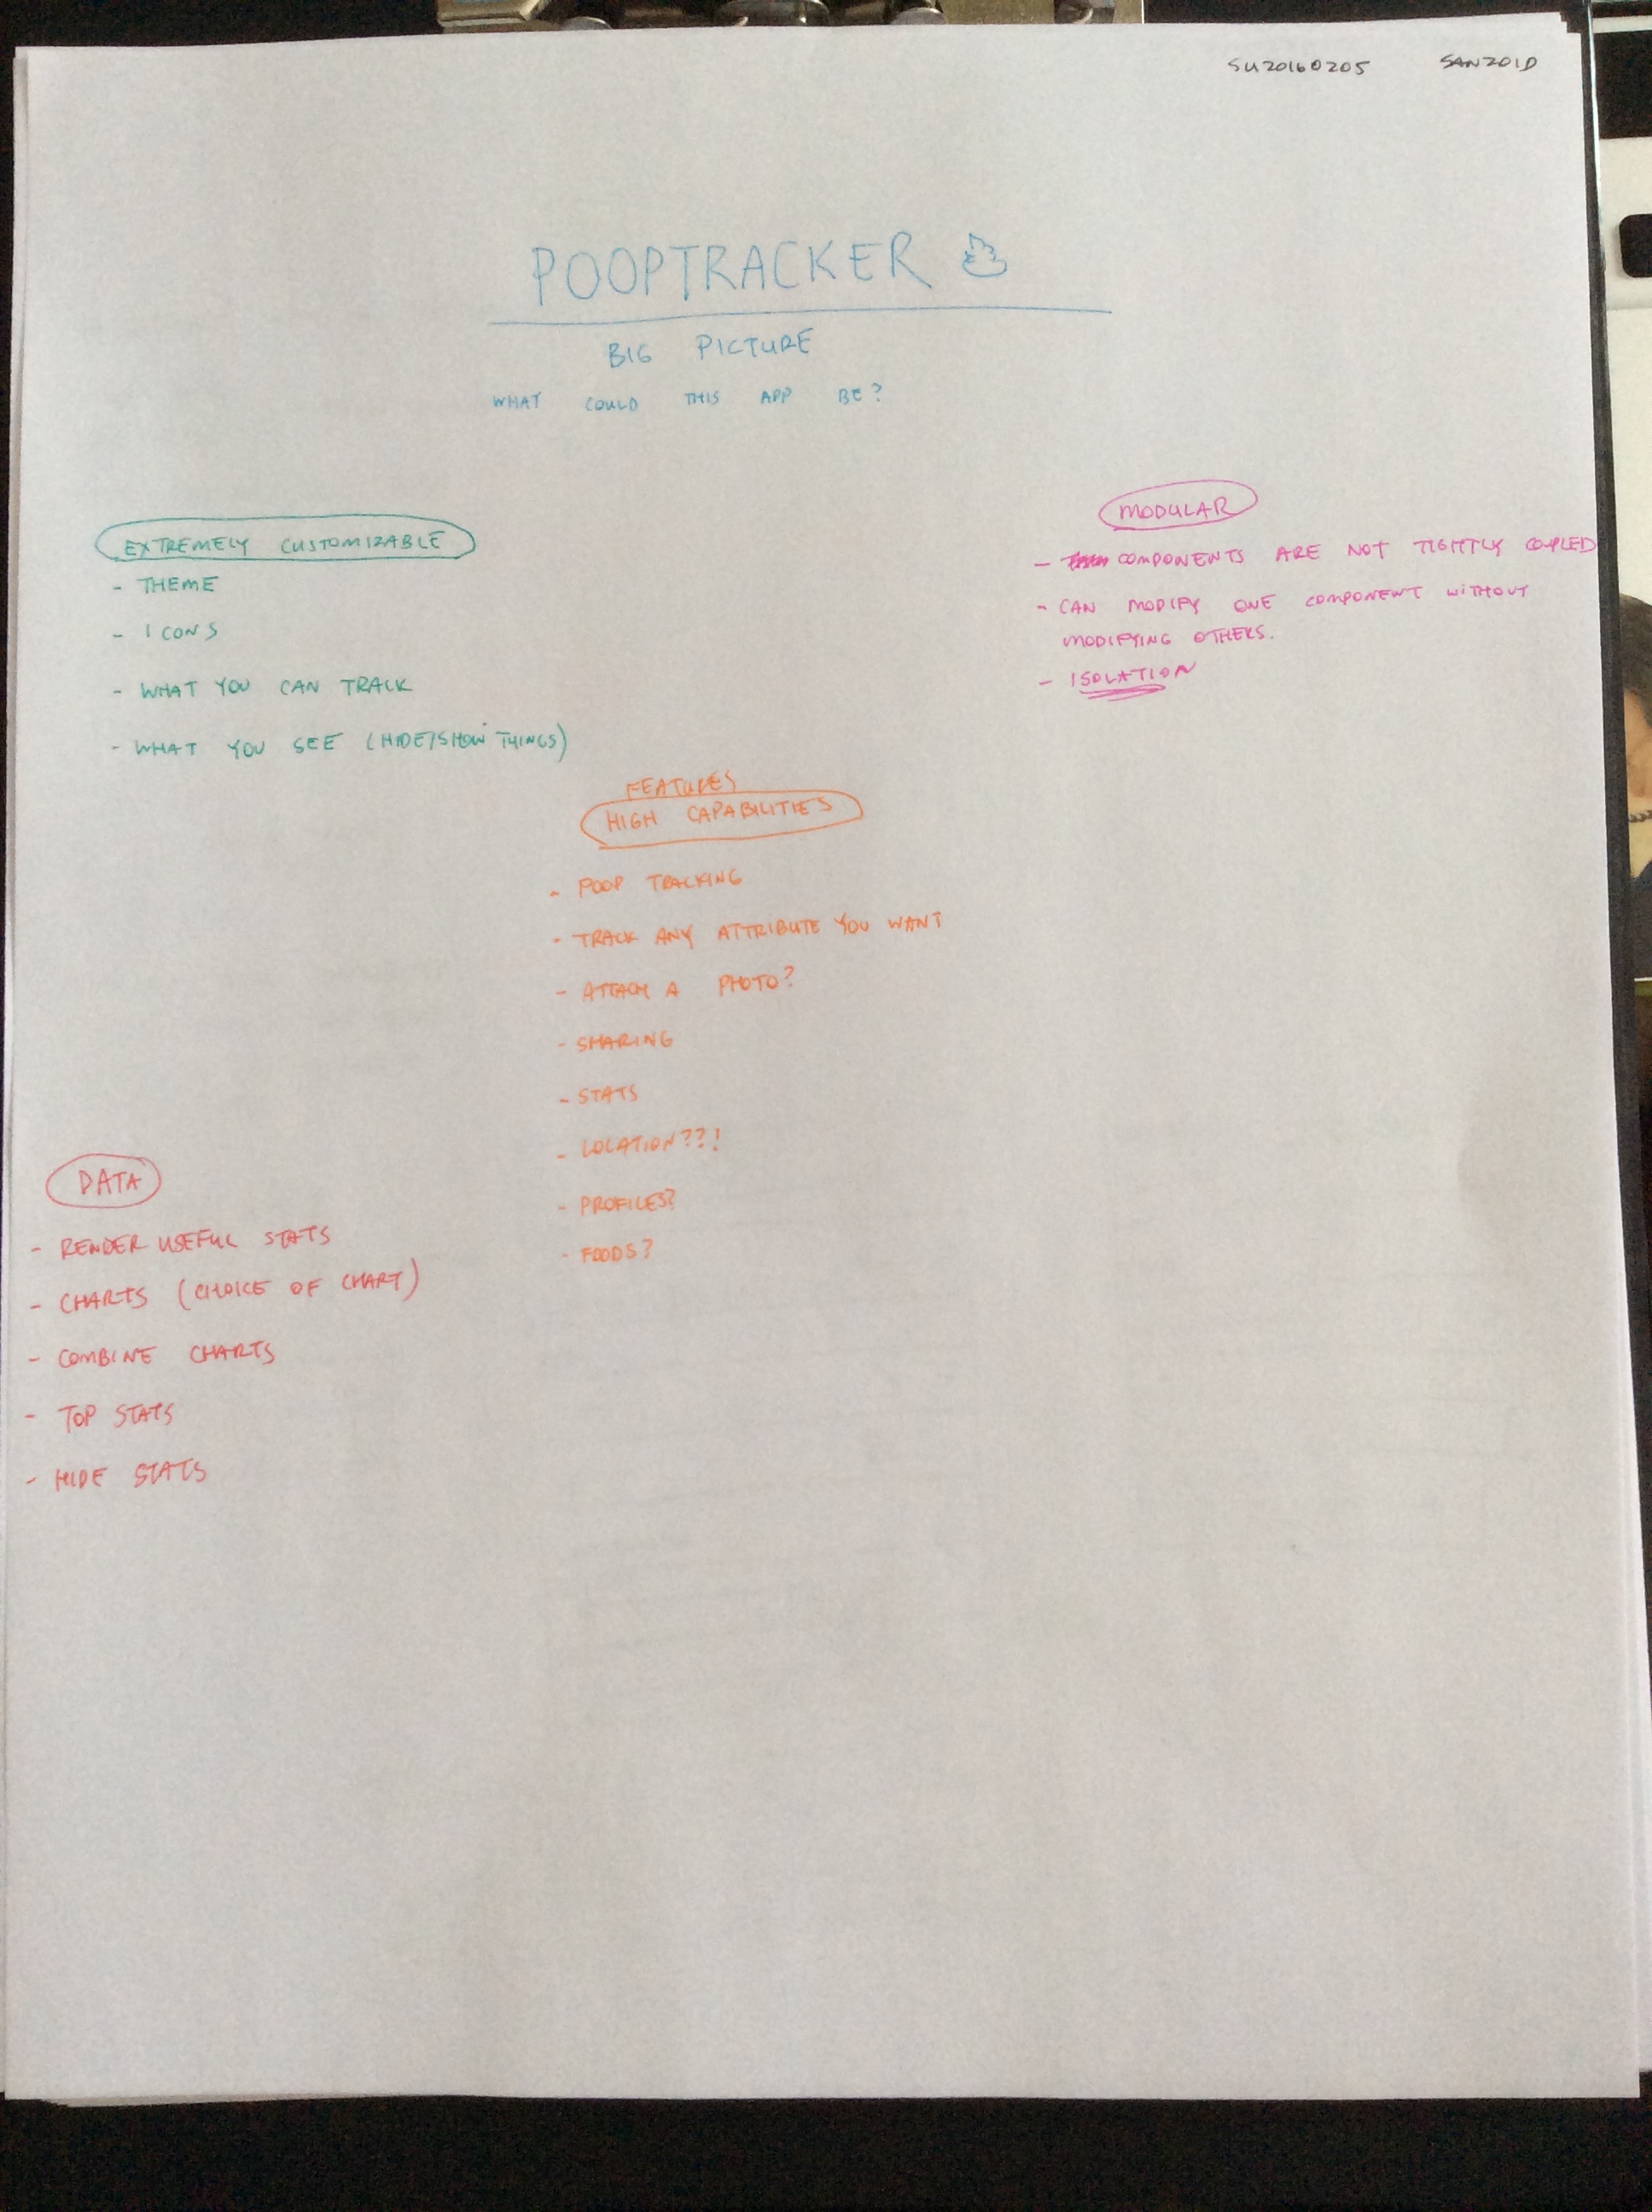 SU20160205 SANZOID
POOPTRACKER
BIG PICTURE
WHAT COULD THIS APP BE?
EXTREMELY CUSTOMIZABLE
- THEME
- ICONS
- WHAT YOU CAN TRACK
- WHAT YOU SEE (HIDE/SHOW THINGS)
MODULAR
- COMPONENTS ARE NOT TIGHTLY COUPLED
- CAN MODIFY ONE COMPONENT WITHOUT
MODIFYING OTHERS.
- ISOLATION
FEATURES
HIGH CAPABILITIES
- POOP TRACKING
- TRACK ANY ATTRIBUTE YOU WANT
- ATTACH A PHOTO?
- SHARING
- STATS
- LOCATION??!
- PROFILES?
- FOODS?
DATA
- RENDER USEFUL STATS
- CHARTS (CHOICE OF CHART)
- COMBINE CHARTS
- TOP STATS
- HIDE STATS